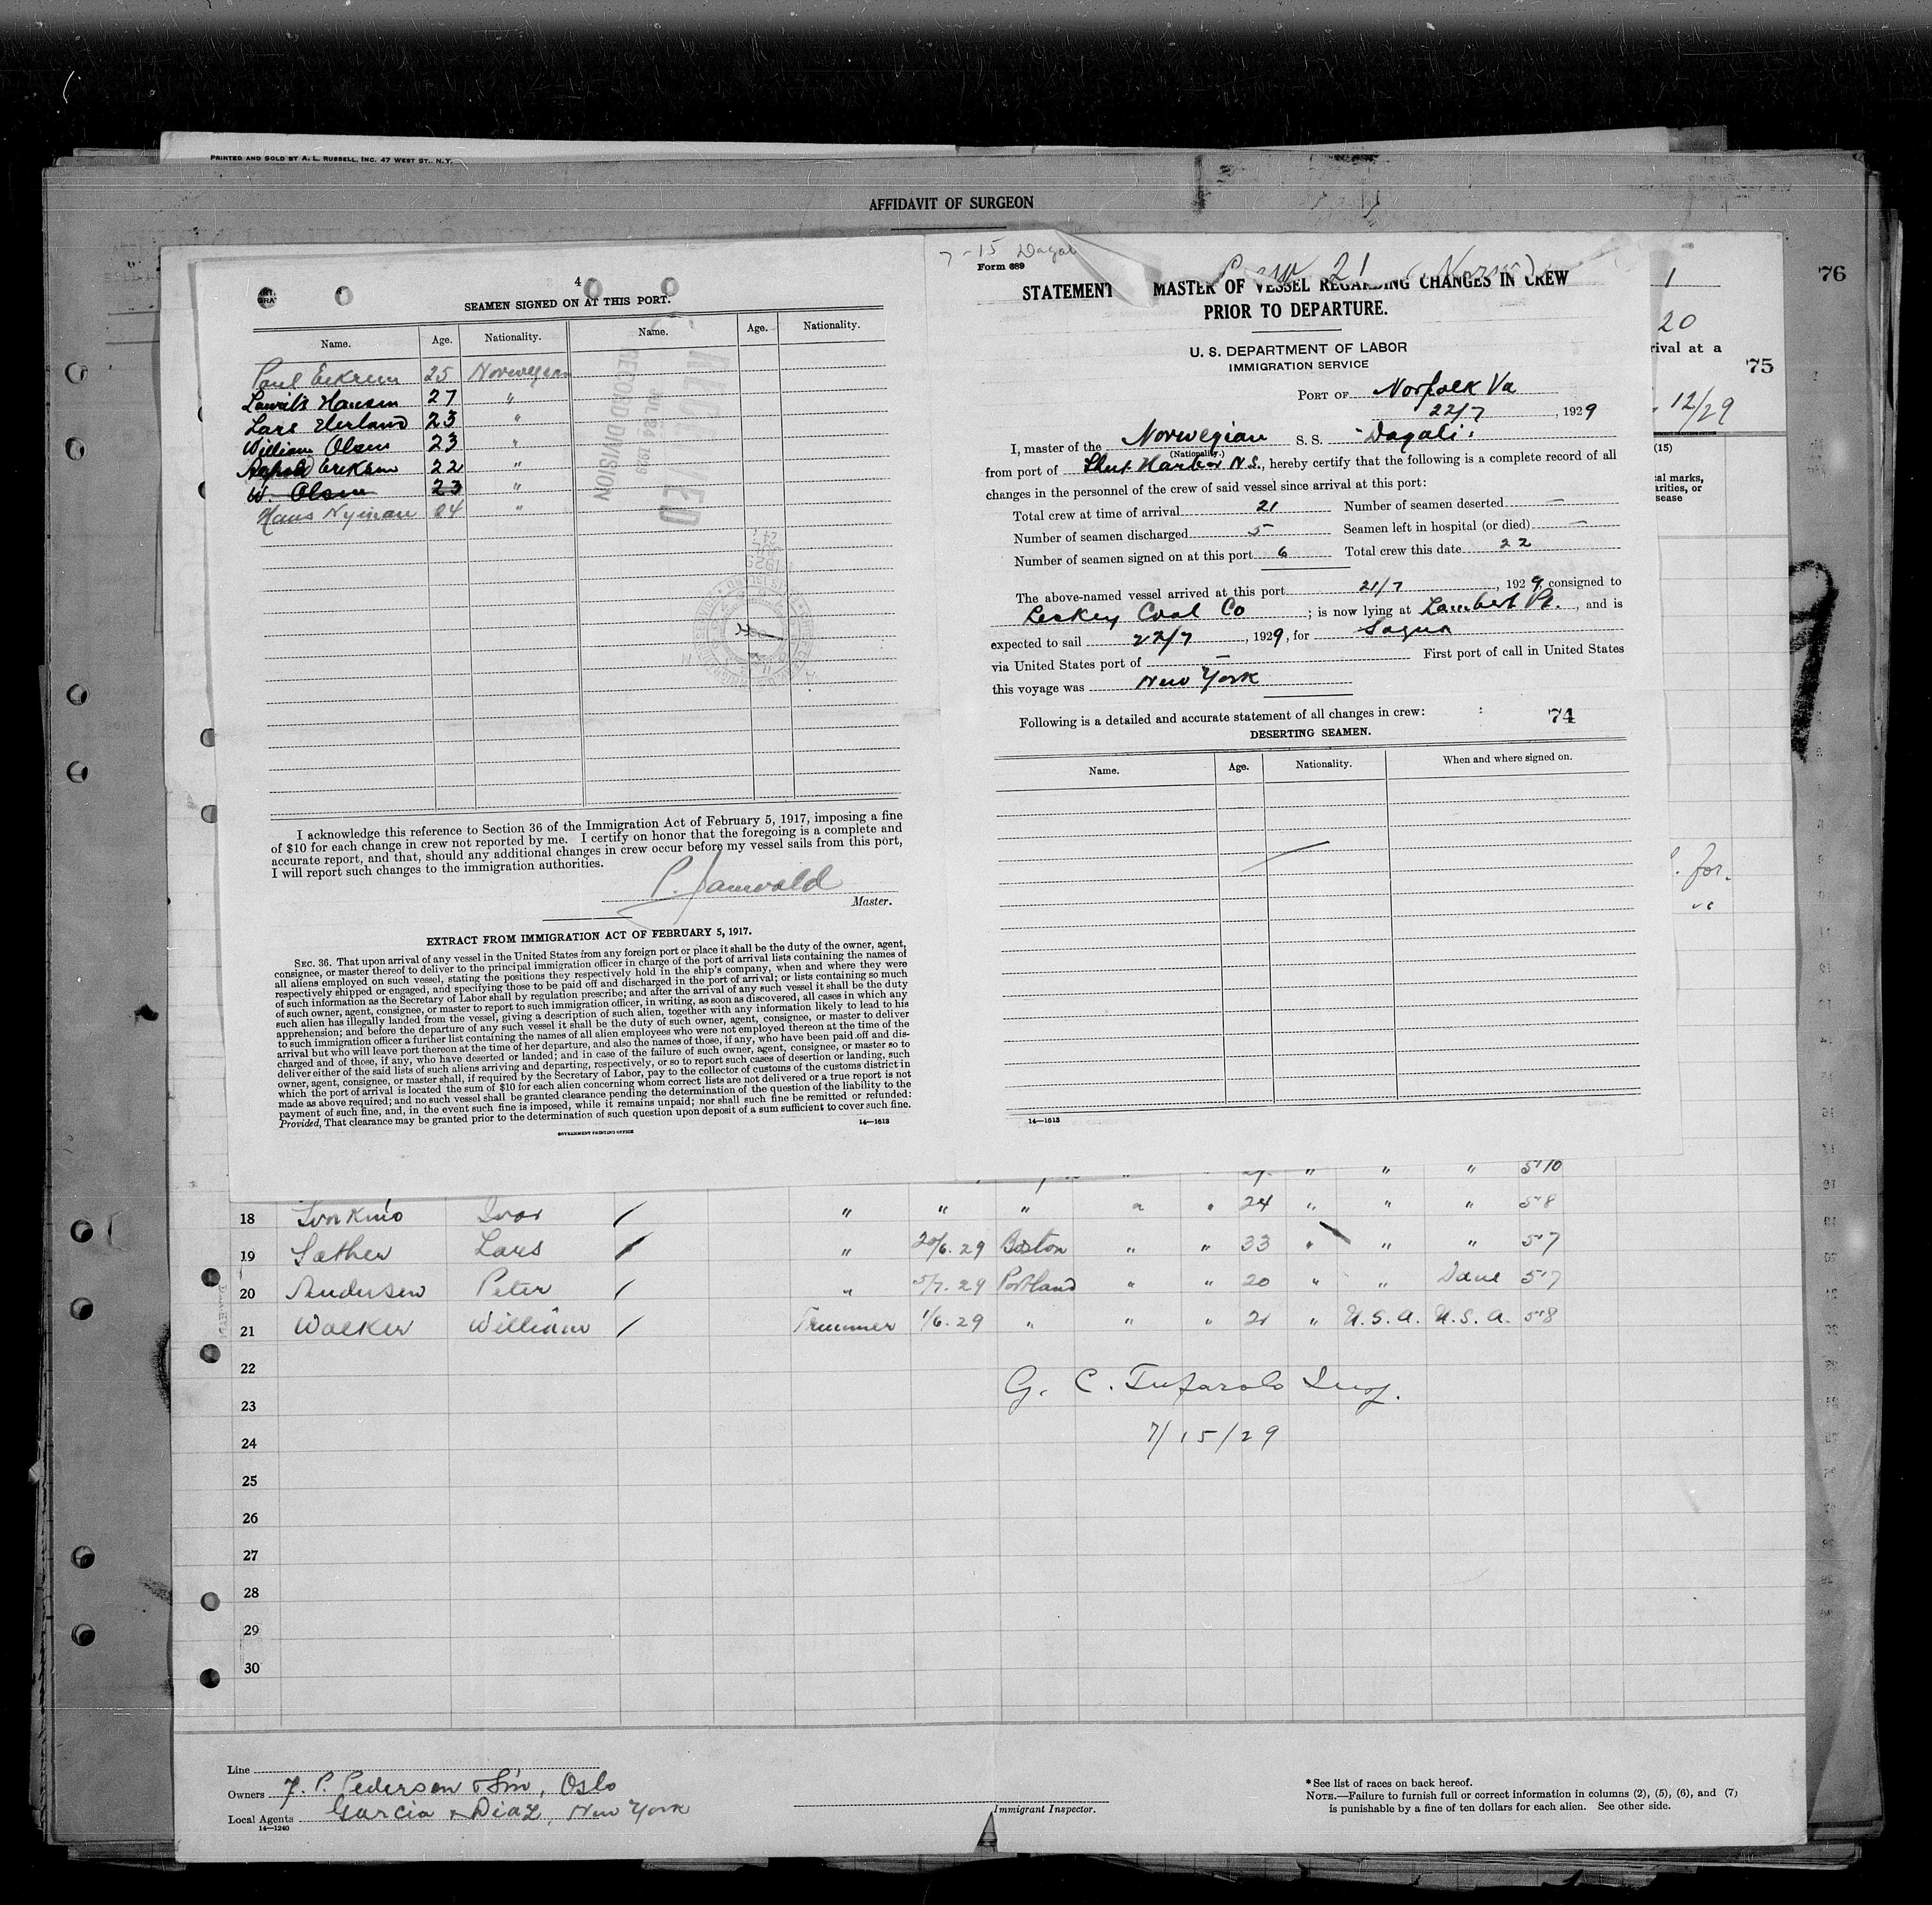 PRINTED AND SOLD BY A. L. RUSSELL, INC. 47 WEST ST., N.Y.
AFFIDAVIT OF SURGEON
76
75
1
20
rival at a
12/29
(15)
cal marks,
arities, or
sease
for.
4
SEAMEN SIGNED ON AT THIS PORT.
Name. Age. Nationality. Name. Age. Nationality.
Paul 25 Norwegian
Laurits Hansen 27 "
Lars 23 "
William Olsen 23 "
Eriksen 22 "
W. Olsen 23 "
Hans Nyman 24 "
RECORD DIVISION
I acknowledge this reference to Section 36 of the Immigration Act of February 5, 1917, imposing a fine
of $10 for each change in crew not reported by me. I certify on honor that the foregoing is a complete and
accurate report, and that, should any additional changes in crew occur before my vessel sails from this port,
I will report such changes to the immigration authorities.
P.
Master.
EXTRACT FROM IMMIGRATION ACT OF FEBRUARY 5, 1917.
SEC. 36. That upon arrival of any vessel in the United States from any foreign port or place it shall be the duty of the owner, agent,
consignee, or master thereof to deliver to the principal immigration officer in charge of the port of arrival lists containing the names of
all aliens employed on such vessel, stating the positions they respectively hold in the ship's company, when and where they were
respectively shipped or engaged, and specifying those to be paid off and discharged in the port of arrival; or lists containing so much
of such information as the Secretary of Labor shall by regulation prescribe; and after the arrival of any such vessel it shall be the duty
of such owner, agent, consignee, or master to report to such immigration officer, in writing, as soon as discovered, all cases in which any
such alien has illegally landed from the vessel, giving a description of such alien, together with any information likely to lead to his
apprehension; and before the departure of any such vessel it shall be the duty of such owner, agent, consignee, or master to deliver
to such immigration officer a further list containing the names of all alien employees who were not employed thereon at the time of the
arrival but who will leave port thereon at the time of her departure, and also the names of those, if any, who have been paid off and dis-
charged and of those, if any, who have deserted or landed; and in case of the failure of such owner, agent, consignee, or master so to
deliver either of the said lists of such aliens arriving and departing, respectively, or so to report such cases of desertion or landing, such
owner, agent, consignee, or master shall, if required by the Secretary of Labor, pay to the collector of customs of the customs district in
which the port of arrival is located the sum of $10 for each alien concerning whom correct lists are not delivered or a true report is not
made as above required; and no such vessel shall be granted clearance pending the determination of the question of the liability to the
payment of such fine, and, in the event such fine is imposed, while it remains unpaid; nor shall such fine be remitted or refunded:
Provided, That clearance may be granted prior to the determination of such question upon deposit of a sum sufficient to cover such fine.
14—1613
GOVERNMENT PRINTING OFFICE
7-15 Dagali
Form 689
Crew 21 (Norw)
STATEMENT MASTER OF VESSEL REGARDING CHANGES IN CREW
PRIOR TO DEPARTURE.
U. S. DEPARTMENT OF LABOR
IMMIGRATION SERVICE
PORT OF Norfolk Va
22/7, 1929
I, master of the Norwegian S. S. "Dagali"
(Nationality.)
from port of Harbor N.S., hereby certify that the following is a complete record of all
changes in the personnel of the crew of said vessel since arrival at this port:
Total crew at time of arrival 21 Number of seamen deserted —
Number of seamen discharged 5 Seamen left in hospital (or died) —
Number of seamen signed on at this port 6 Total crew this date 22
The above-named vessel arrived at this port 21/7, 1929, consigned to
Leckey Coal Co; is now lying at Lambert Pt., and is
expected to sail 22/7, 1929, for Sagua
via United States port of — First port of call in United States
this voyage was New York
Following is a detailed and accurate statement of all changes in crew:
74
DESERTING SEAMEN.
Name. Age. Nationality. When and where signed on.
14—1613
" " " 5'10
18 Ivar / " " " " " 24 " " " 5'8
19 Sather Lars / " 20/6. 29 Boston " " 33 " " " 5'7
20 Andersen Peter / " 5/7. 29 Portland " " 20 " " Dane 5'7
21 Walker William / Trimmer 1/6. 29 " " " 21 " U.S.A. U.S.A. 5'8
22
23
24
25
26
27
28
29
30
G. C. Insp.
7/15/29
Line
Owners Pedersen & Sön, Oslo
Local Agents Garcia & Diaz, New York
14—1240
Immigrant Inspector.
*See list of races on back hereof.
NOTE.—Failure to furnish full or correct information in columns (2), (5), (6), and (7)
is punishable by a fine of ten dollars for each alien. See other side.